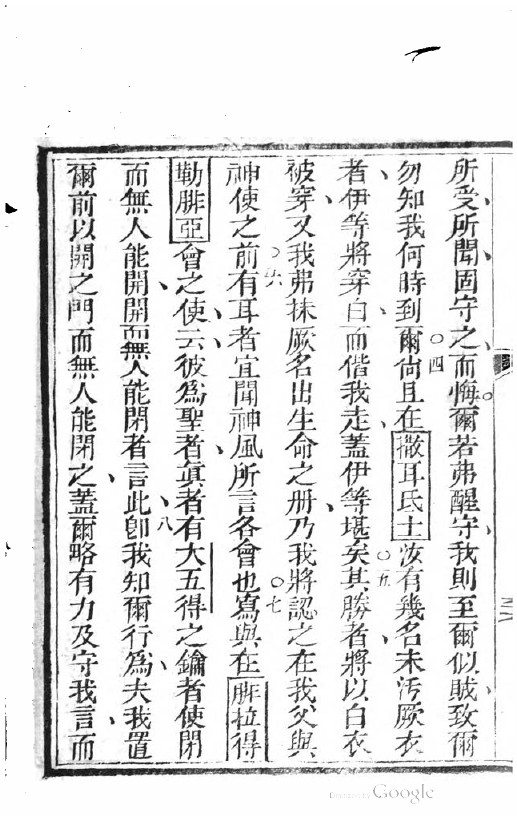 所受所聞固守之而悔爾若弗醒守我則至爾似賊致爾
勿知我何時到爾○四尙且在撒耳氐士汝有幾名未汚厥衣
者伊等將穿白而偕我走蓋伊等堪矣○五其勝者將以白衣
被穿又我弗抹厥名出生命之册乃我將認之在我父與
神使之前○六有耳者宜聞神風所言各會也○七寫與在腓拉得
勒腓亞會之使云彼爲聖者眞者有大五得之鑰者使閉
而無人能開開而無人能閉者言此卽八我知爾行爲夫我置
爾前以開之門而無人能閉之蓋爾略有力及守我言而
Digitized by Google